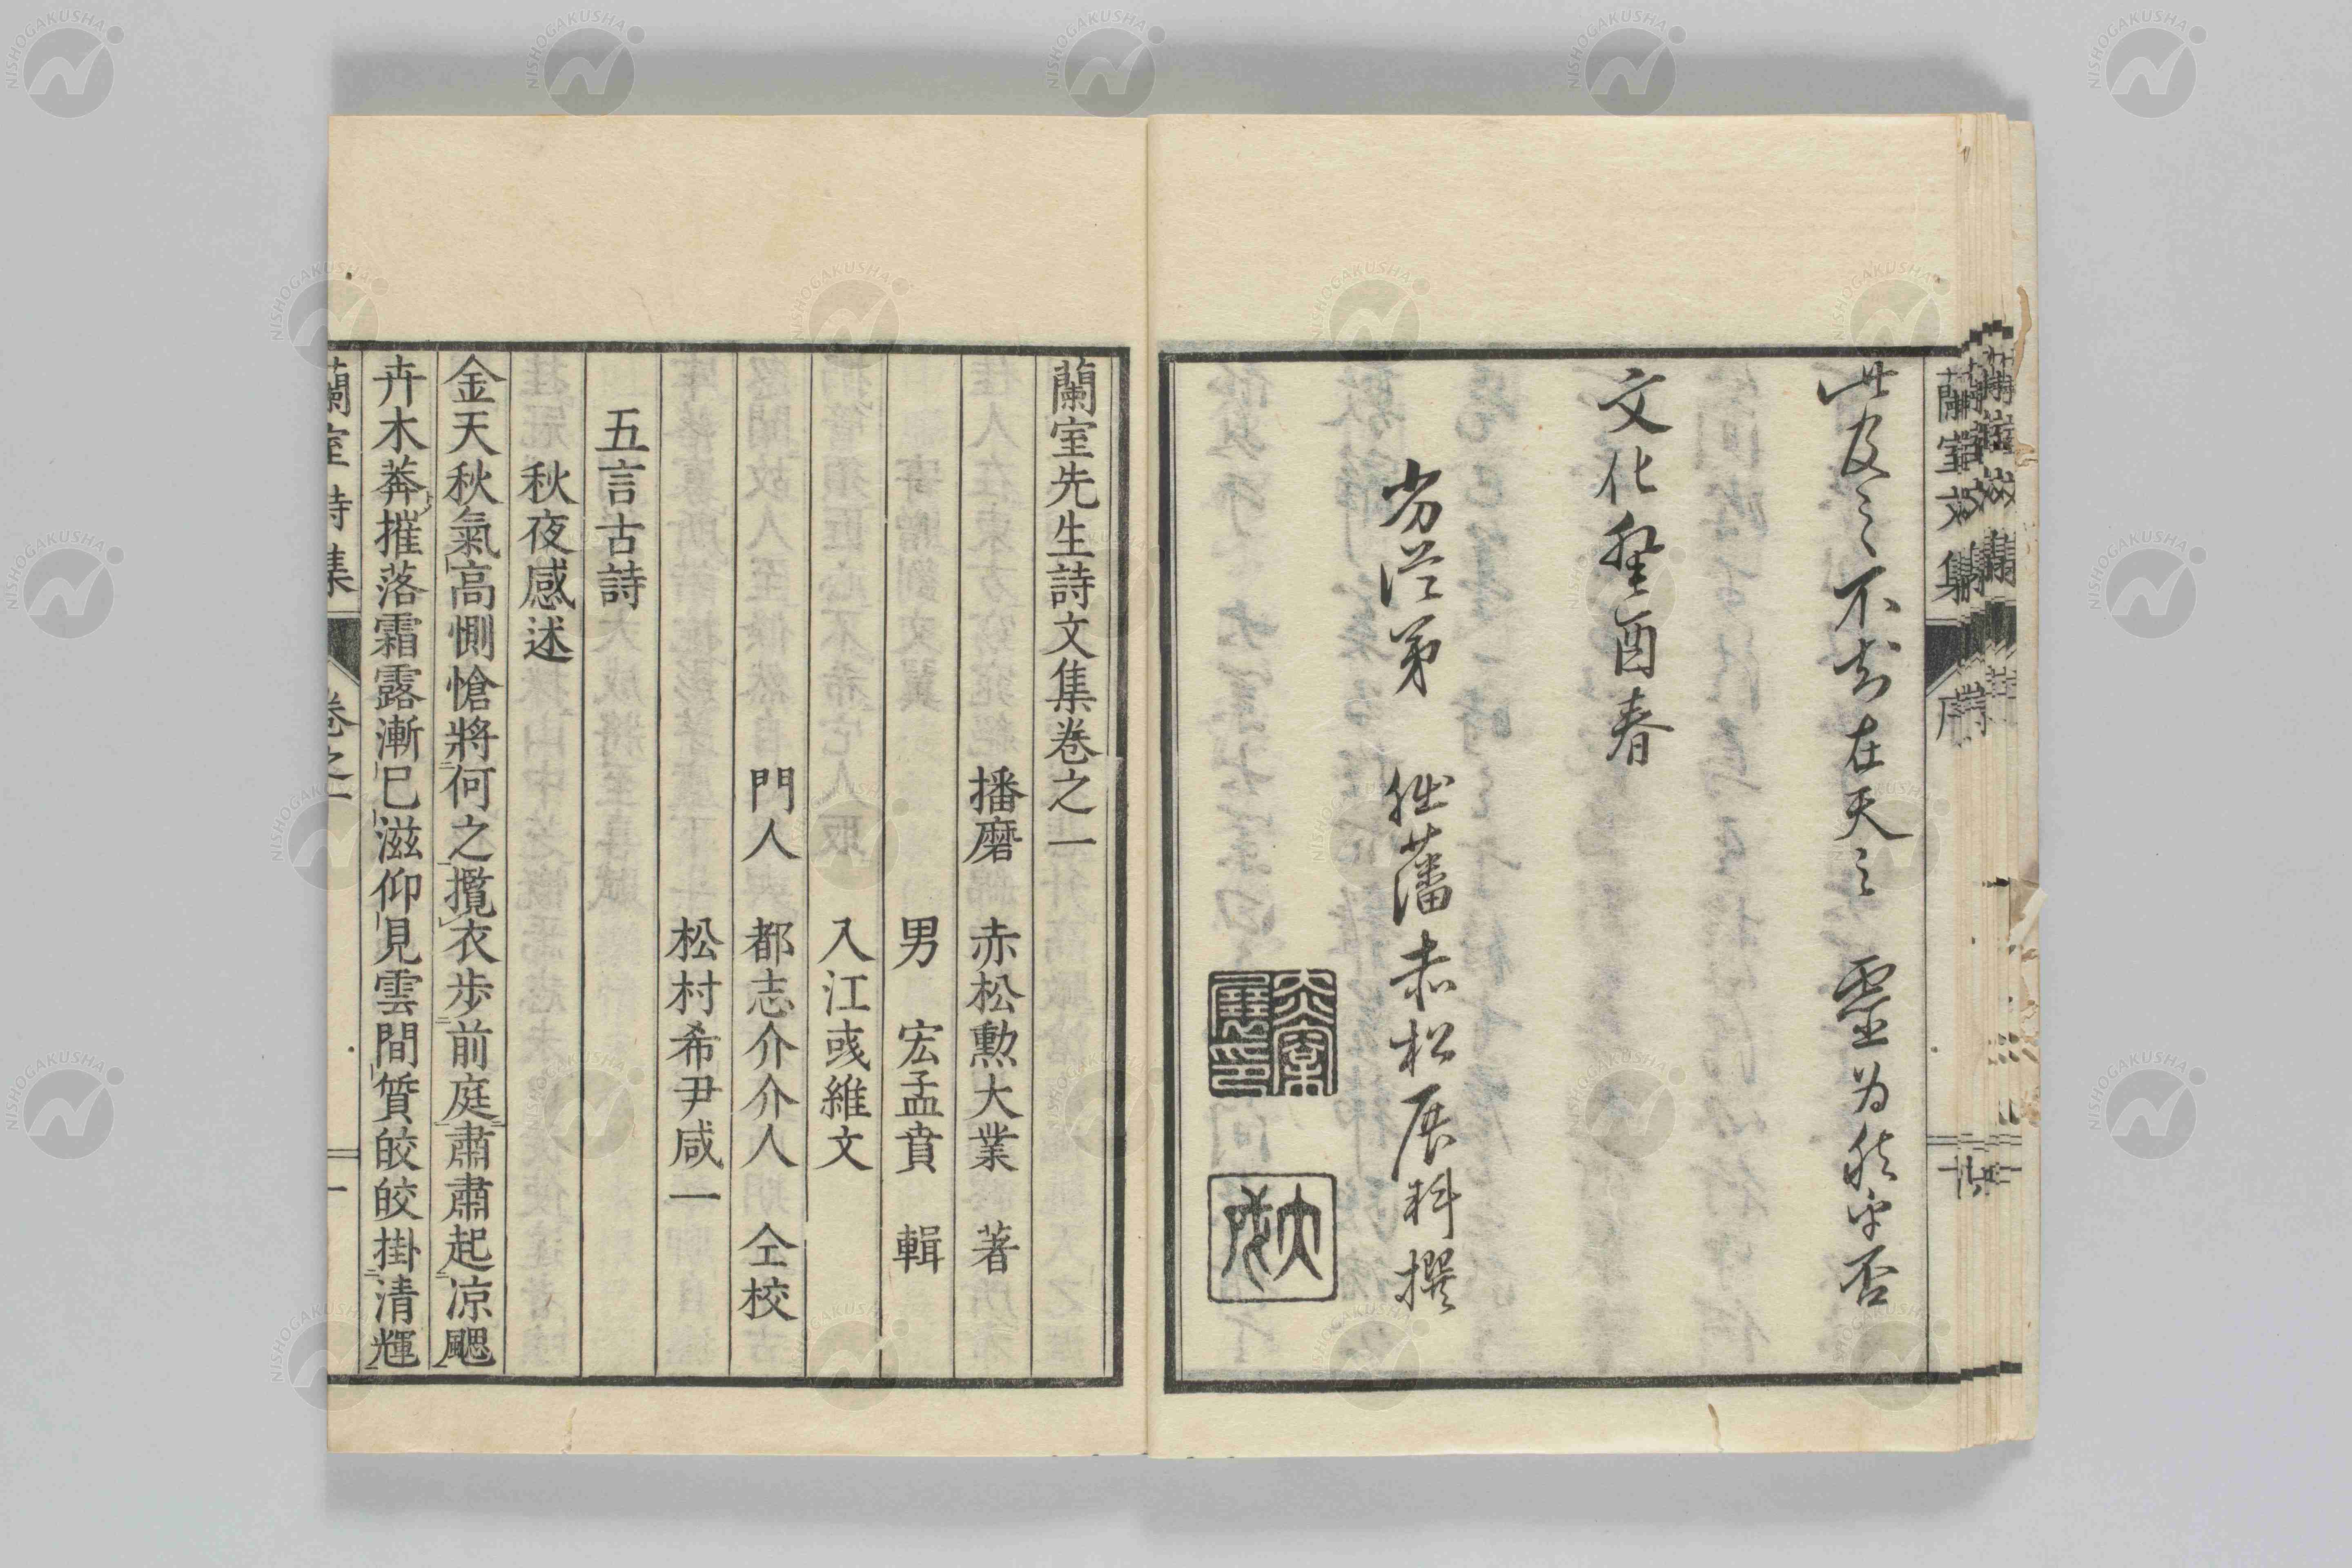 此及之不知在天之靈為然乎否
文化癸酉春
劣從弟 拙藩赤松展科撰
蘭室文集 序
蘭室先生詩文集卷之一
播磨 赤松勲大業 著
男 宏孟賁 輯
入江彧維文
門人 都志介介人 仝校
松村希尹咸一
五言古詩
秋夜感述
金天秋氣高惻愴將何之攬衣步前庭肅肅起凉颸
卉木莾摧落霜露漸已滋仰見雲間質皎皎掛清輝
蘭室詩集 卷之一 一